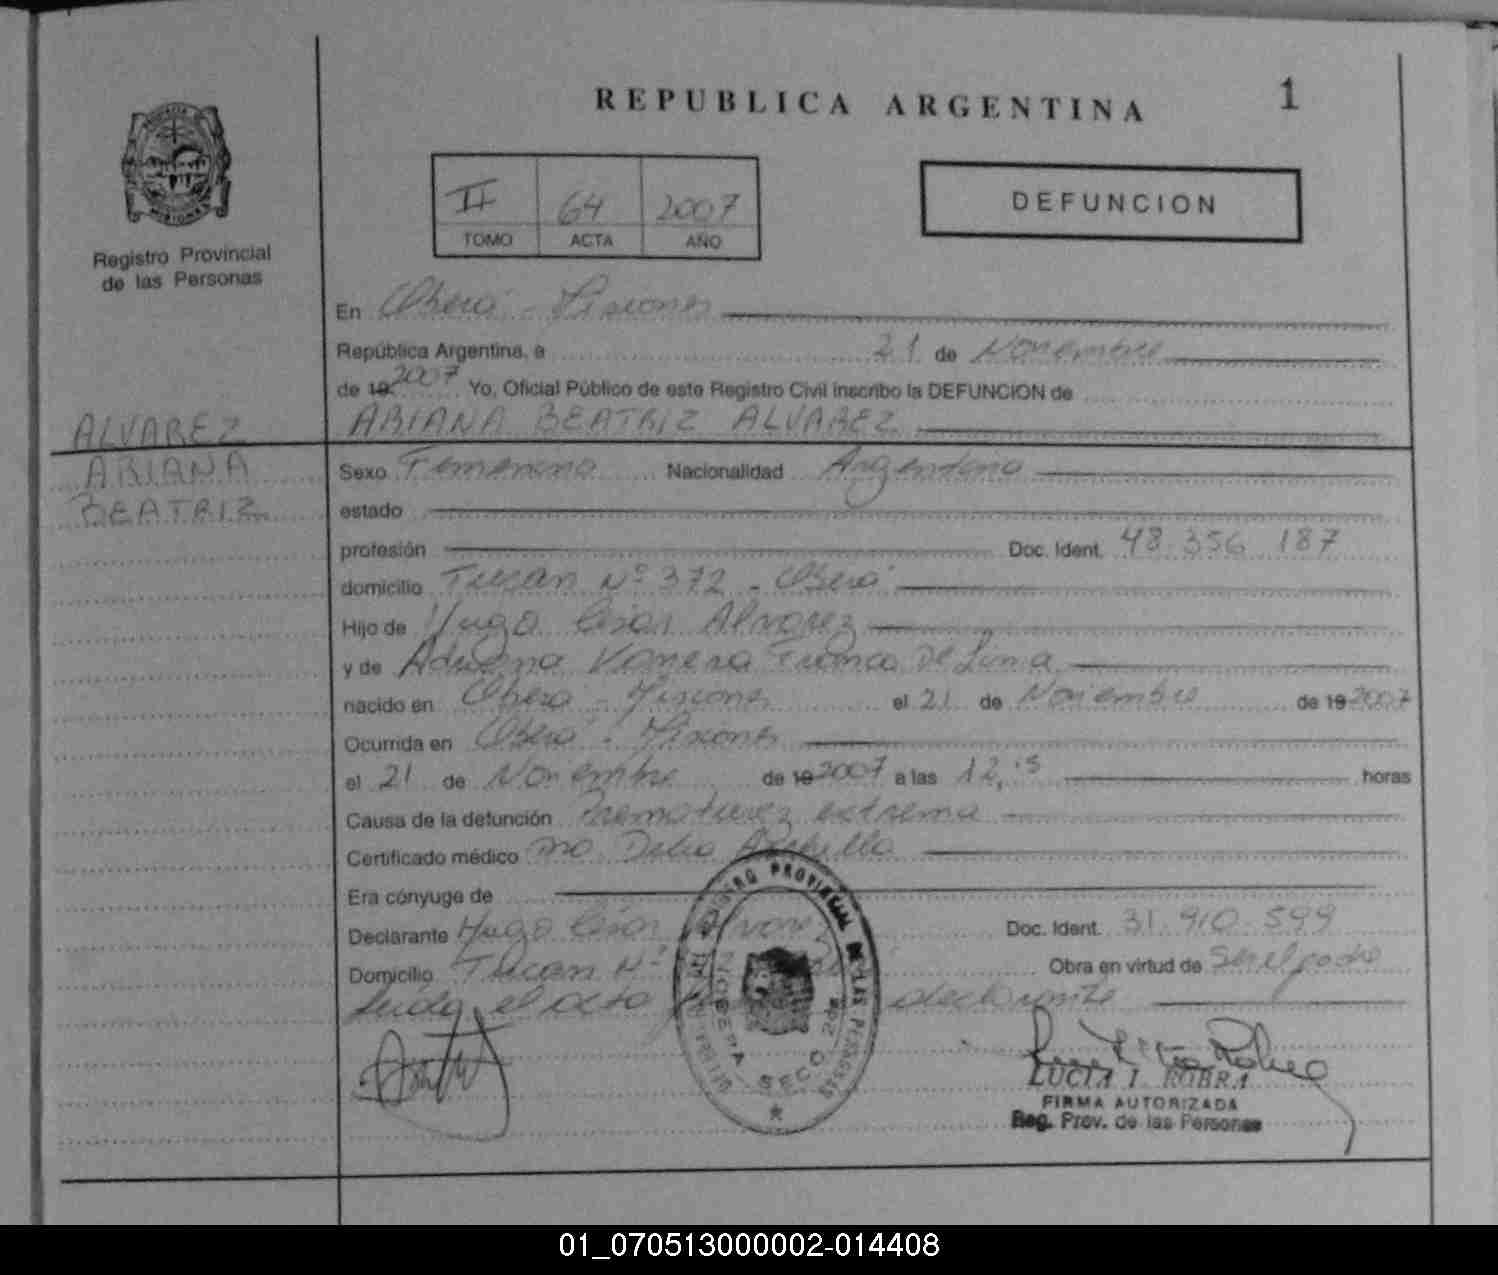 REPUBLICA ARGENTINA
1
Registro Provincial
de las Personas
II 64 2007
TOMO ACTA AÑO
DEFUNCION
En Oberá - Misiones
República Argentina, a 21 de Noviembre
de 19 2007 Yo, Oficial Público de este Registro Civil inscribo la DEFUNCION de
ARIANA BEATRIZ ALVAREZ
ALVAREZ
ARIANA
BEATRIZ
Sexo Femenino Nacionalidad Argentina
estado
profesión Doc. Ident. 48 356 187
domicilio Tucan Nº 372 - Oberá
Hijo de Hugo César Alvarez
y de Adriana Vanesa Franco De Lima
nacido en Oberá - Misiones el 21 de Noviembre de 19 2007
Ocurrida en Oberá - Misiones
el 21 de Noviembre de 19 2007 a las 12,15 horas
Causa de la defunción Prematurez extrema
Certificado médico Delia
Era cónyuge de
Declarante Hugo César Alvarez Doc. Ident. 31.910.599
Domicilio Tucan Nº Obra en virtud de Ser el padre
el acto declarante
REGISTRO PROVINCIAL DE LAS PERSONAS
OBERA SECC 2da
LUCIA I. ROBRA
FIRMA AUTORIZADA
Reg. Prov. de las Personas
01_070513000002-014408